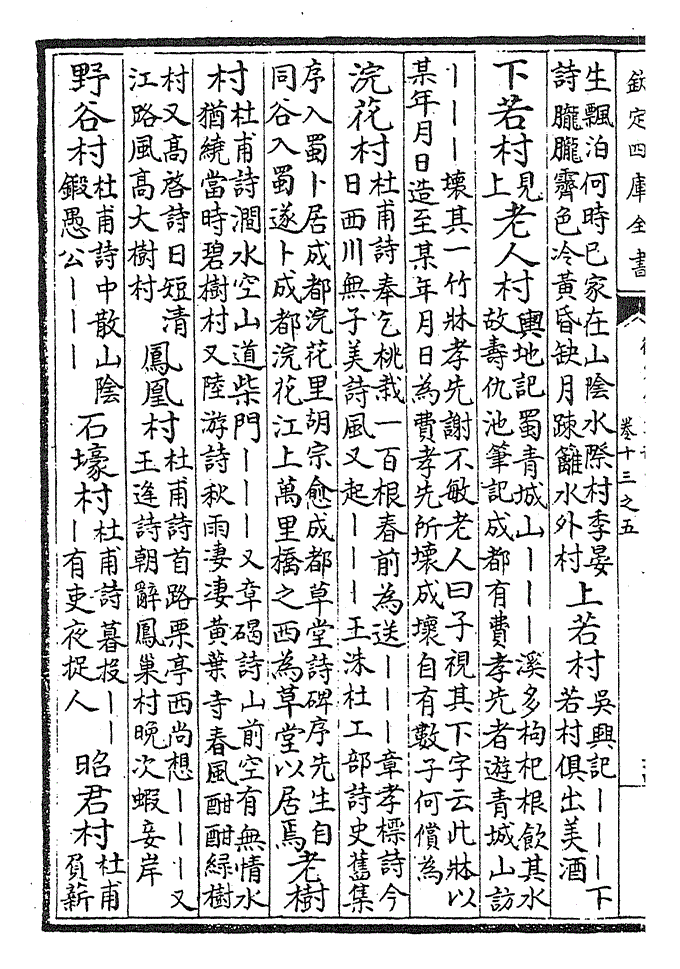 欽定四庫全書
卷十三之五
生飄泊何時已家在山陰水際村季晏
詩朧朧霽色冷黃昏缺月疎籬水外村
上若村
吳興記｜｜｜下
若村俱出美酒
下若村
見
上
老人村
輿地記蜀青城山｜｜｜溪多枸杞根飲其水
故壽仇池筆記成都有費孝先者遊青城山訪
｜｜｜壞其一竹牀孝先謝不敏老人曰子視其下字云此牀以
某年月日造至某年月日為費孝先所壞成壞自有數子何償為
浣花村
杜甫詩奉乞桃栽一百根春前為送｜｜｜章孝標詩今
日西川無子美詩風又起｜｜｜王洙杜工部詩史舊集
序入蜀卜居成都浣花里胡宗愈成都草堂詩碑序先生自
同谷入蜀遂卜成都浣花江上萬里橋之西為草堂以居焉
老樹
村
杜甫詩澗水空山道柴門｜｜｜又章碣詩山前空有無情水
猶繞當時碧樹村又陸游詩秋雨凄凄黃葉寺春風酣酣綠樹
村又高啓詩日短清
江路風高大樹村
鳳凰村
杜甫詩首路栗亭西尚想｜｜｜又
王逢詩朝辭鳳巢村晚次蝦妾岸
野谷村
杜甫詩中散山陰
鍛愚公｜｜｜
石壕村
杜甫詩暮投｜｜
｜有吏夜捉人
昭君村
杜甫
負薪